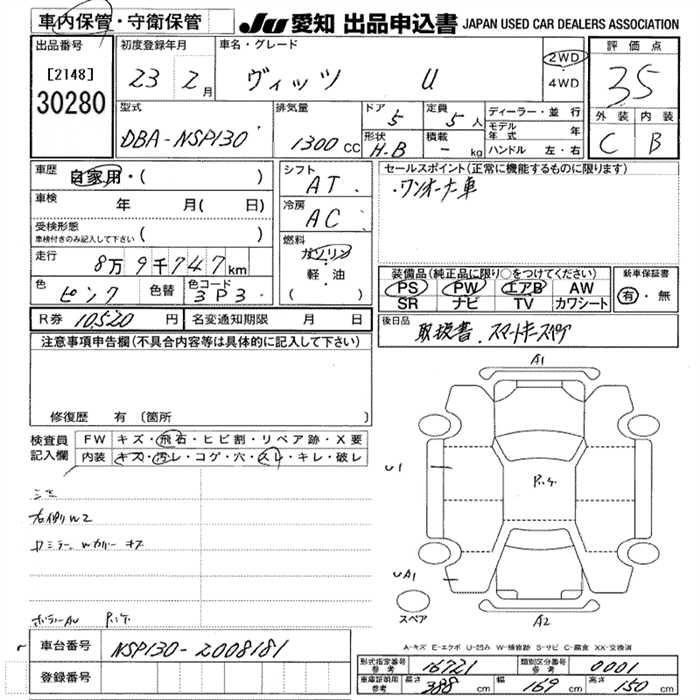 車内保管・守衛保管
JU 愛知 出品申込書 JAPAN USED CAR DEALERS ASSOCIATION
出品番号
[2148]
30280
初度登録年月
23 2月
車名・グレード
ヴィッツ U
2WD
・
4WD
評価点
35
外装 内装
C B
型式
DBA-NSP130
排気量
1300cc
ドア 5
定員 5人
形状 H.B
積載 - kg
ディーラー・並行
モデル年式 年
ハンドル 左・右
車歴
自家用・( )
車検
年 月( 日)
受検形態
車検付きのみ記入して下さい ( )
走行
8万9千747km
色
ピンク
色替
色コード
3P3
シフト
AT
冷房
AC
燃料
ガソリン
軽・油
( )
セールスポイント(正常に機能するものに限ります)
・ワンオーナー車
装備品(純正品に限り○をつけてください)
PS PW エアB AW
SR ナビ TV カワシート
新車保証書
有・無
R券 10520円
名変通知期限 月 日
後日品
取扱書. スマートキースペア
注意事項申告欄(不具合内容等は具体的に記入して下さい)
修復歴 有(箇所 )
検査員
記入欄
FW キズ・飛石・ヒビ割・リペア跡・X要
内装 キズ・汚レ・コゲ・穴・スレ・キレ・破レ
A1
U1
UA1
A2
スペア
右W2
車台番号 NSP130-2008181
登録番号
A-キズ E-エクボ U-凹み W-補修跡 S-サビ C-腐食 XX-交換済
形式指定番号
参考
16721
類別区分番号
参考
0001
車庫証明用
参考
長さ 388 cm 幅 169 cm 高さ 150 cm